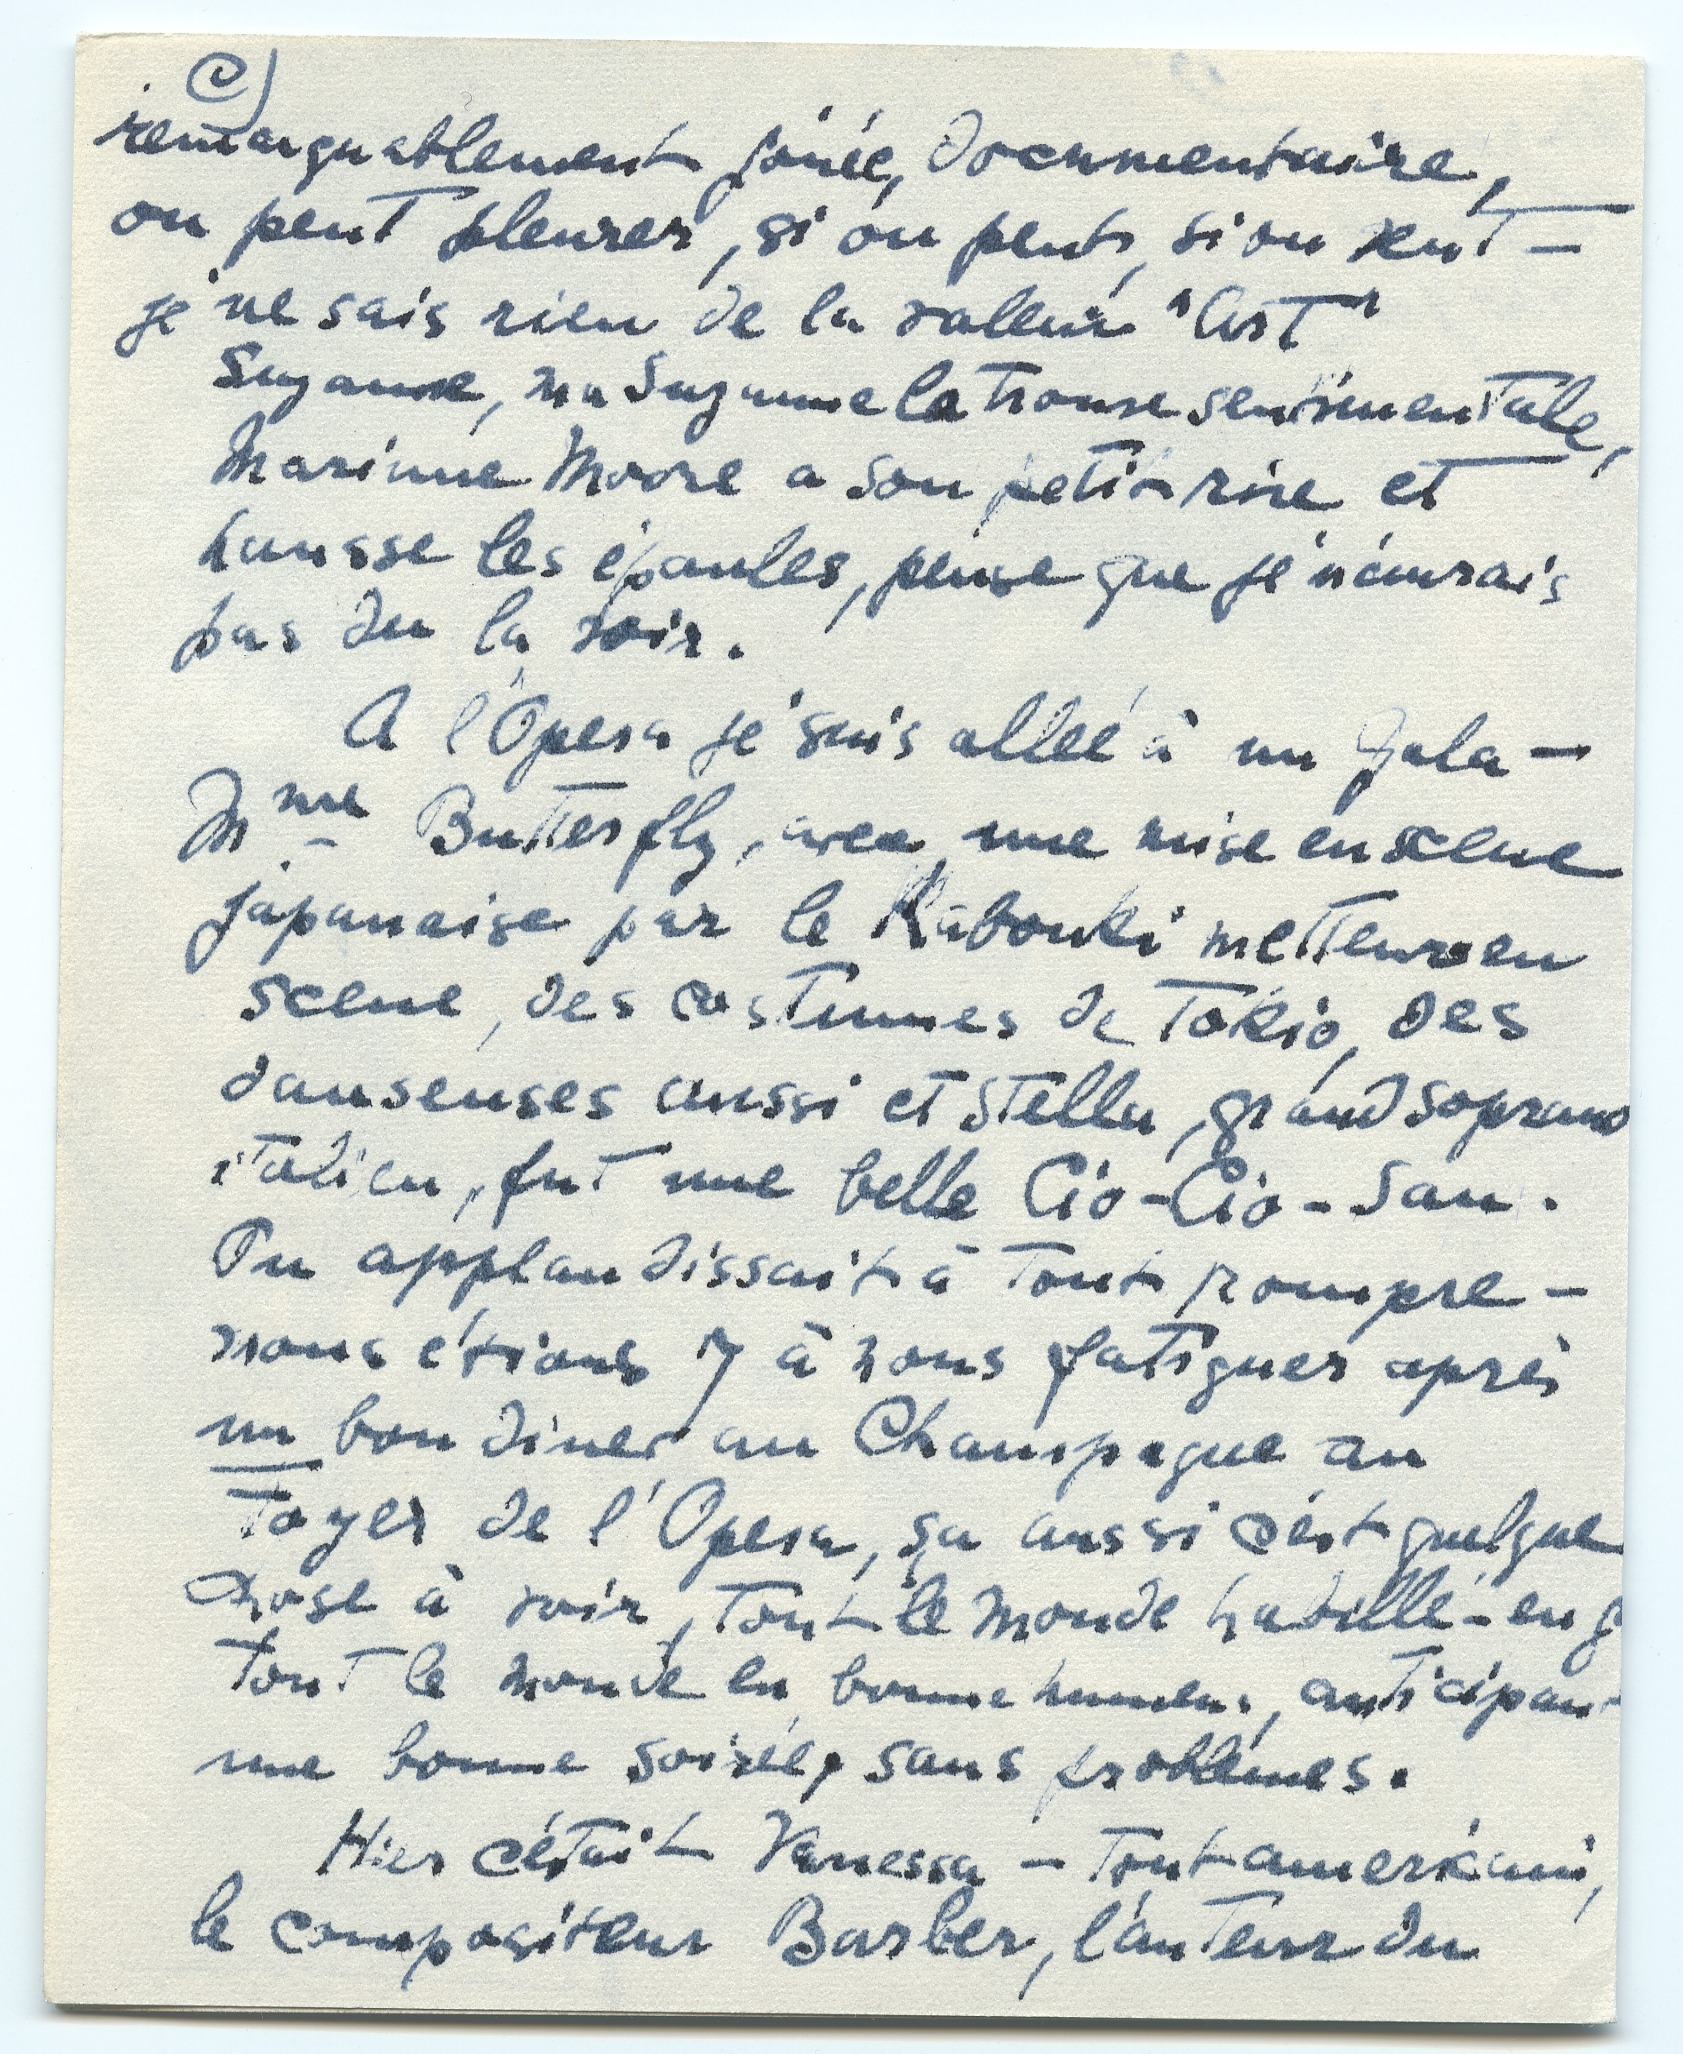 C)
remarquablement jouée, documentaire,
on peut pleurer, si on peut, si on veut –
je ne sais rien de la valleur "Art"
Suzanne, ma Suzanne la trouve sentimentale,
Marinne Moore a son petit rire et
hausse les épaules, pense que je n'aurais
pas du la voir.
A l'Opera je suis allée à un Gala –
Mme Butterfly, avec une mise en scene
japonaise par le Kabouki metteur en
scene, des costumes de Tokio, des
danseuses aussi et Stella, grand soprano
italien, fut une belle Cio-Cio-San.
On applaudissait à tout rompre –
nous étions 7 à nous fatiguer après
un bon diner au Champagne au
Foyer de l'Opera, ça aussi c'est quelque
chose à voir, tout le monde habillé – en g
tout le monde en bonne humeur, anticipan
une bonne soirée, sans problèmes.
Hier c'était Vanessa – tout americain,
le compositeur Barber, l'auteur du